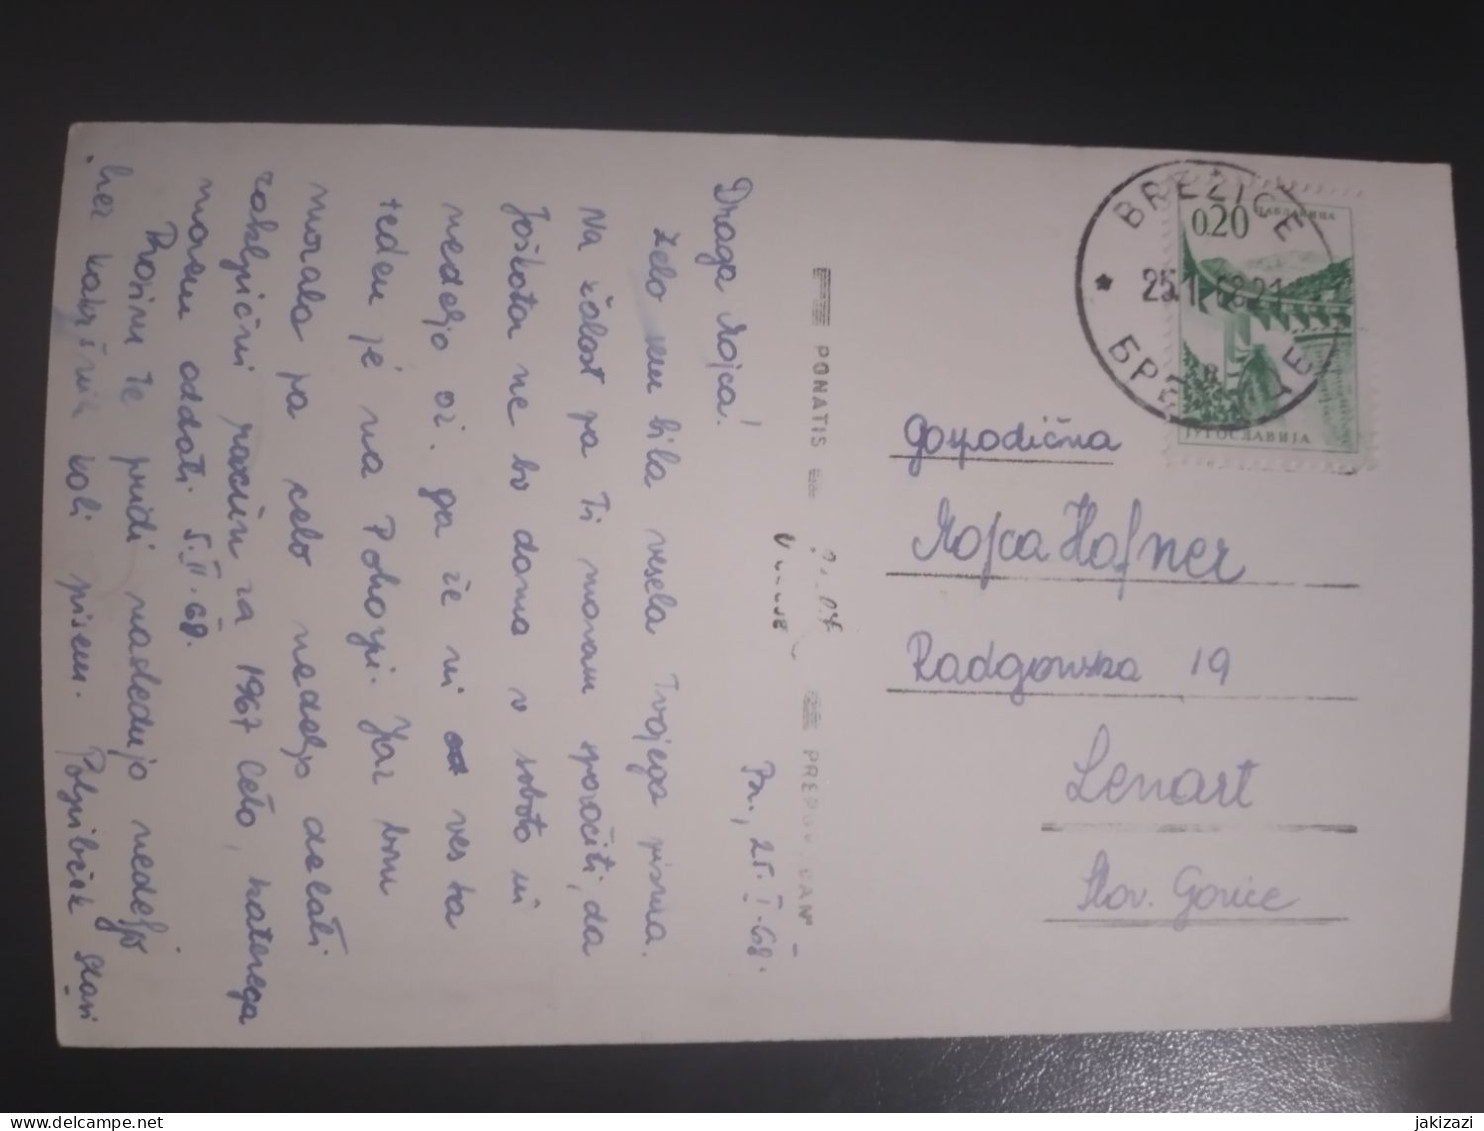 Br., 25. I. 68.
Draga Mojca!
Zelo sem bila vesela Tvojega pisma.
Na žalost pa Ti moram sporočiti, da
Joškota ne bo doma v soboto in
nedeljo oz. ga že ni ves ta
teden je na Pohorju. Jaz bom
morala pa celo nedeljo delati
zaključni račun za 1967 leto, katerega
moram oddati 5. II. 68.
Prosim te pridi naslednjo nedeljo
brez kakršnih koli pisem. Poljubček Stasi
PONATIS
PREPOVEDAN
BREŽICE
25.1.68 21
БРЕЖИЦЕ
0.20
ЈУГОСЛАВИЈА
Gospodična
Mojca Hafner
Radgonska 19
Lenart
Slov. Gorice
jakizazi